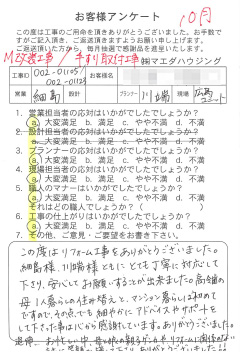 お客様アンケート 10月
この度は工事のご用命を頂きありがとうございました。お手数で
すがご記入頂き、ご返送頂きますようお願い申し上げます。
ご返送頂いた方から、毎月抽選で感謝品を進呈いたします。
M改造工事/手すり取付工事
㈱マエダハウジング
工事ID 002-01105/ お客様名
002-01123
営業 細島 設計 プランナー 川端 現場 広島
ユニット
1. 営業担当者の応対はいかがでしたでしょうか?
a. 大変満足 b. 満足 c. やや不満 d. 不満
2. 設計担当者の応対はいかがでしたでしょうか?
a. 大変満足 b. 満足 c. やや不満 d. 不満
3. プランナーの応対はいかがでしたでしょうか?
a. 大変満足 b. 満足 c. やや不満 d. 不満
4. 現場担当者の応対はいかがでしたでしょうか?
a. 大変満足 b. 満足 c. やや不満 d. 不満
5. 職人のマナーはいかがでしたでしょうか?
a. 大変満足 b. 満足 c. やや不満 d. 不満
それはどの職人でしょうか?
6. 工事の仕上がりはいかがでしたでしょうか?
a. 大変満足 b. 満足 c. やや不満 d. 不満
7. その他、ご意見・ご要望をお書き下さい。
この度はリフォーム工事をありがとうございました。
細島様、川端様ともにとても丁寧に対応して
下さり、安心してお願いすることが出来ました。高齢の
母1人暮らしの住み替えで、マンション暮らしは初めて
ですので、その点でも細やかにアドバイスやサポートを
して下さった事は心から感謝しています。ありがとうございました。